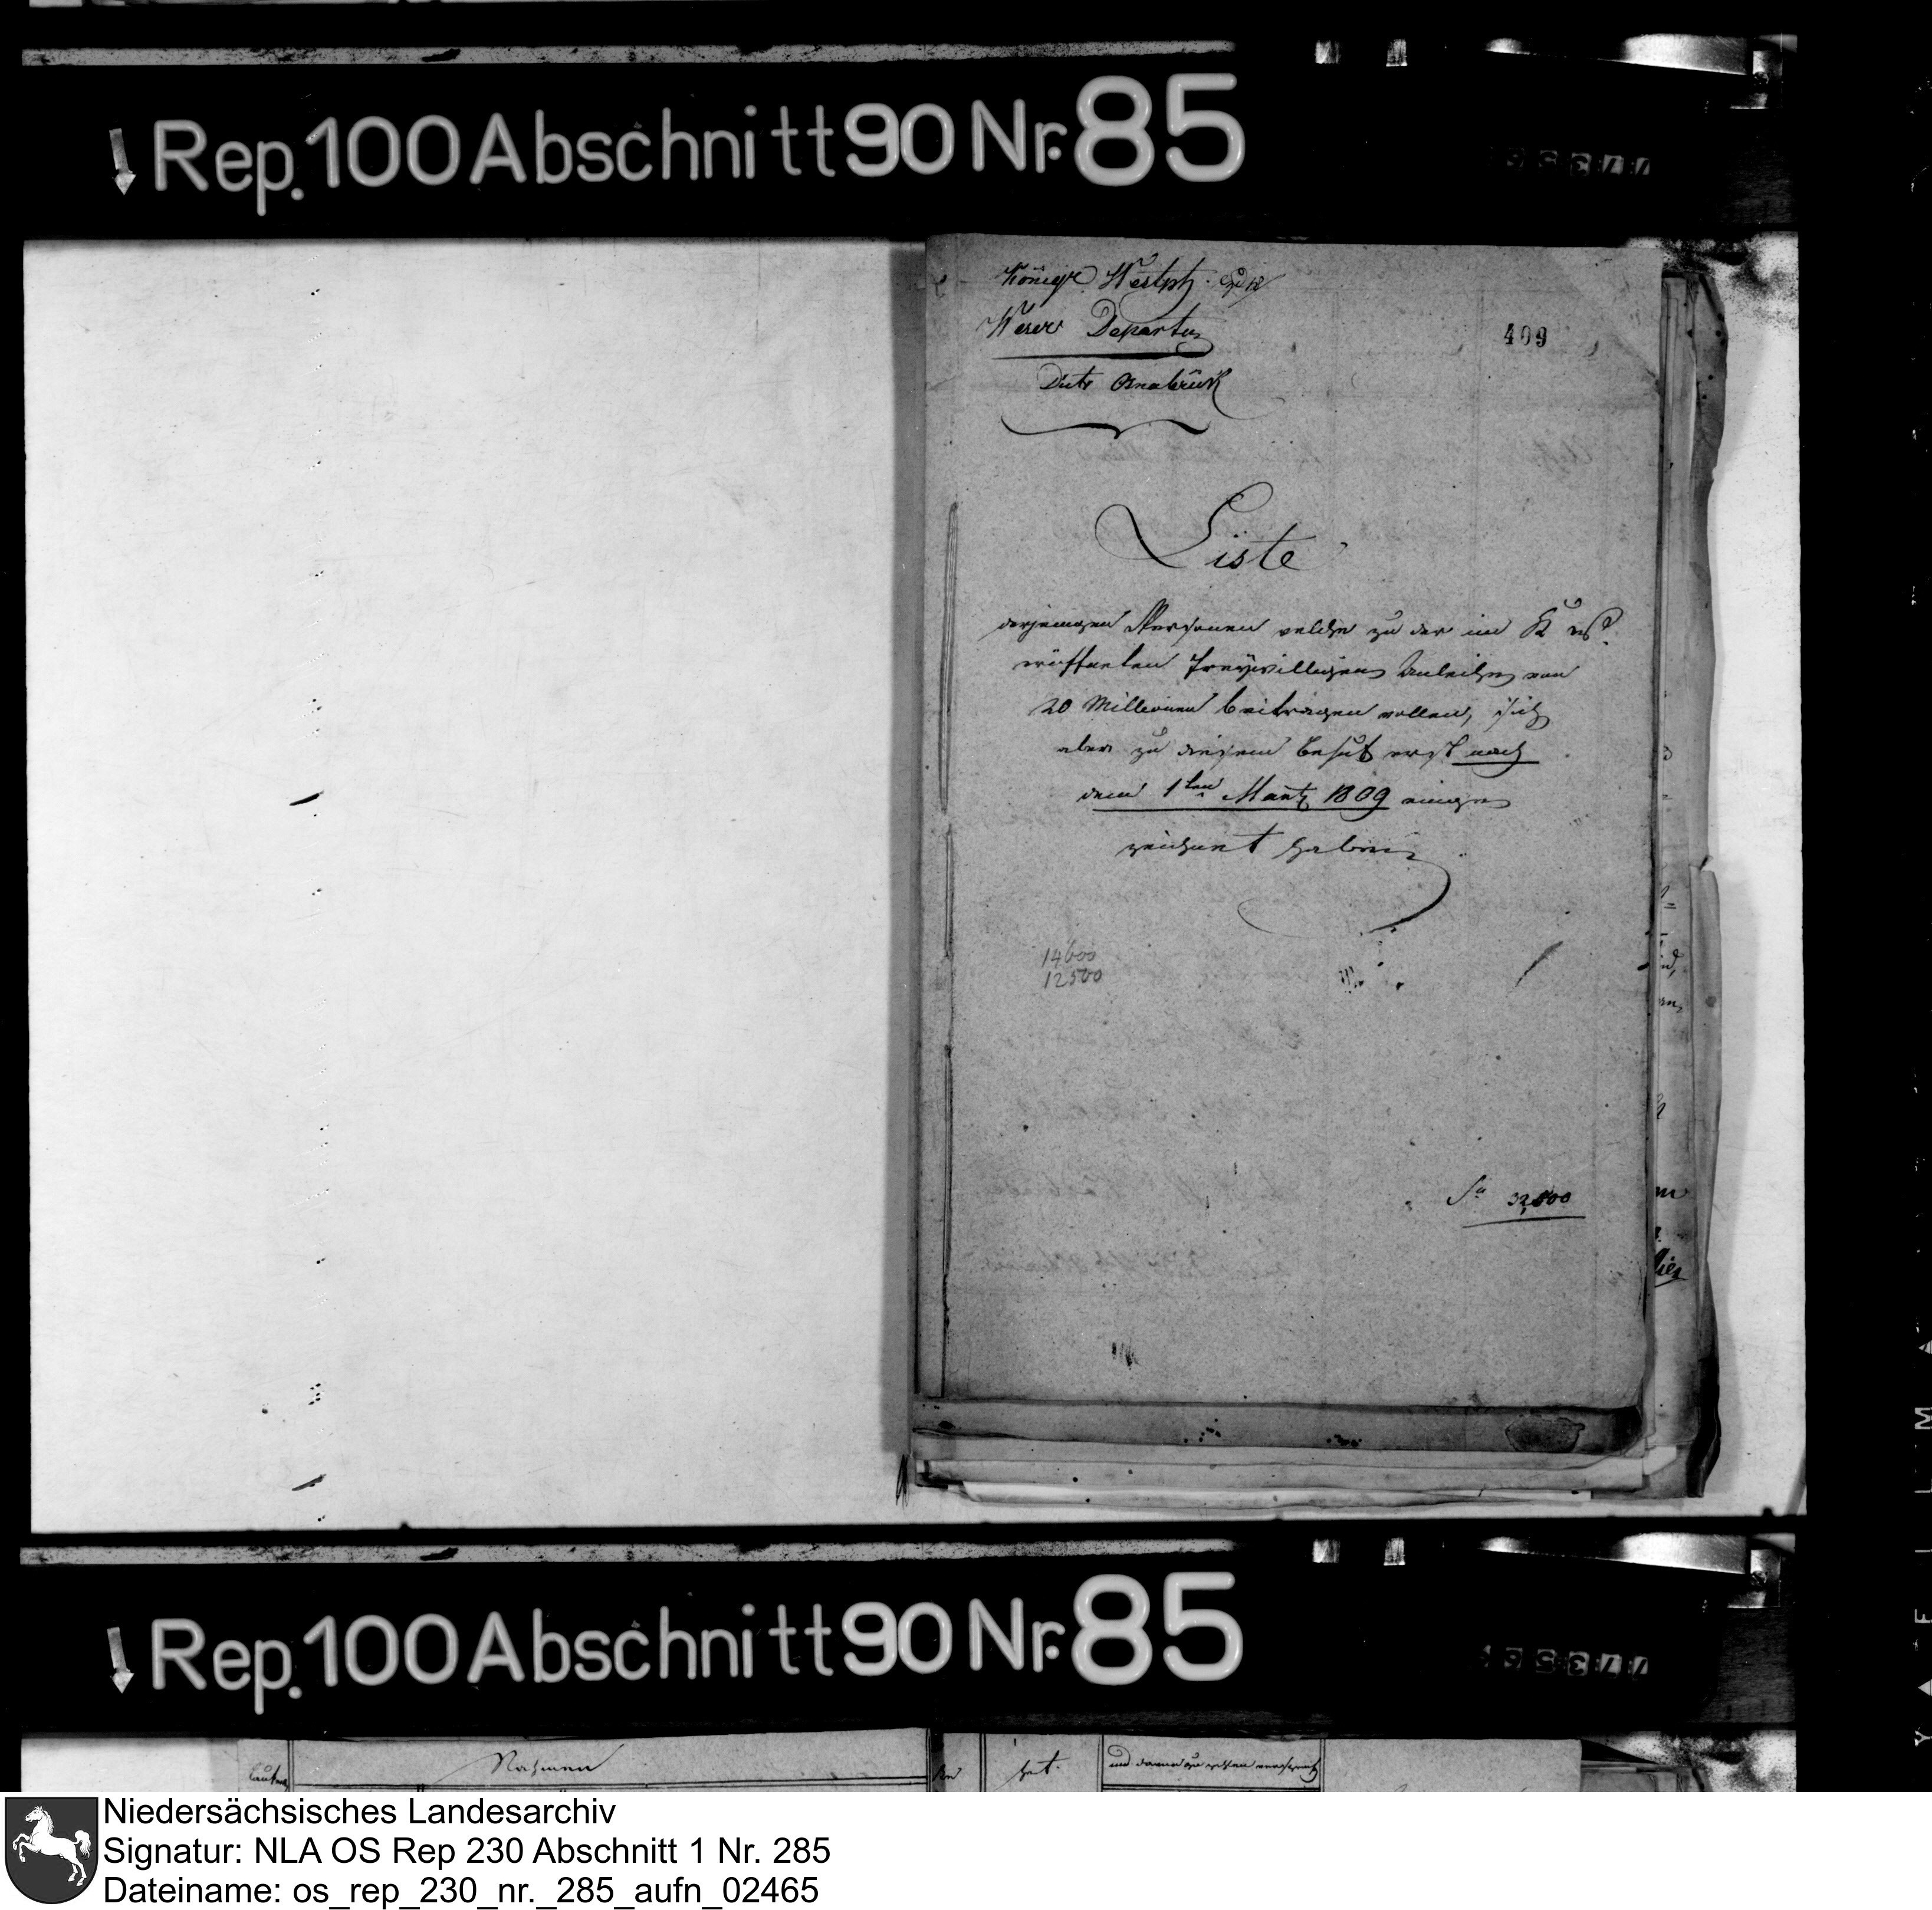 Rep. 100 Abschnitt 90 Nr. 85
Königr Westph.
Weser Departem
409
Distr Osnabrück
Liste
derjenigen Personen welche zu der im K
eröffneten freywilligen Anleihe von
20 Millionen beitragen wollen, sich
aber zu diesem Behuf erst nach
dem 1ten Maertz 1809 einge
zeichnet haben
14600
12500
Sa 32,000
Rep. 100 Abschnitt 90 Nr. 85
Nahmen
hat.
Niedersächsisches Landesarchiv
Signatur: NLA OS Rep 230 Abschnitt 1 Nr. 285
Dateiname: os_rep_230_nr._285_aufn_02465